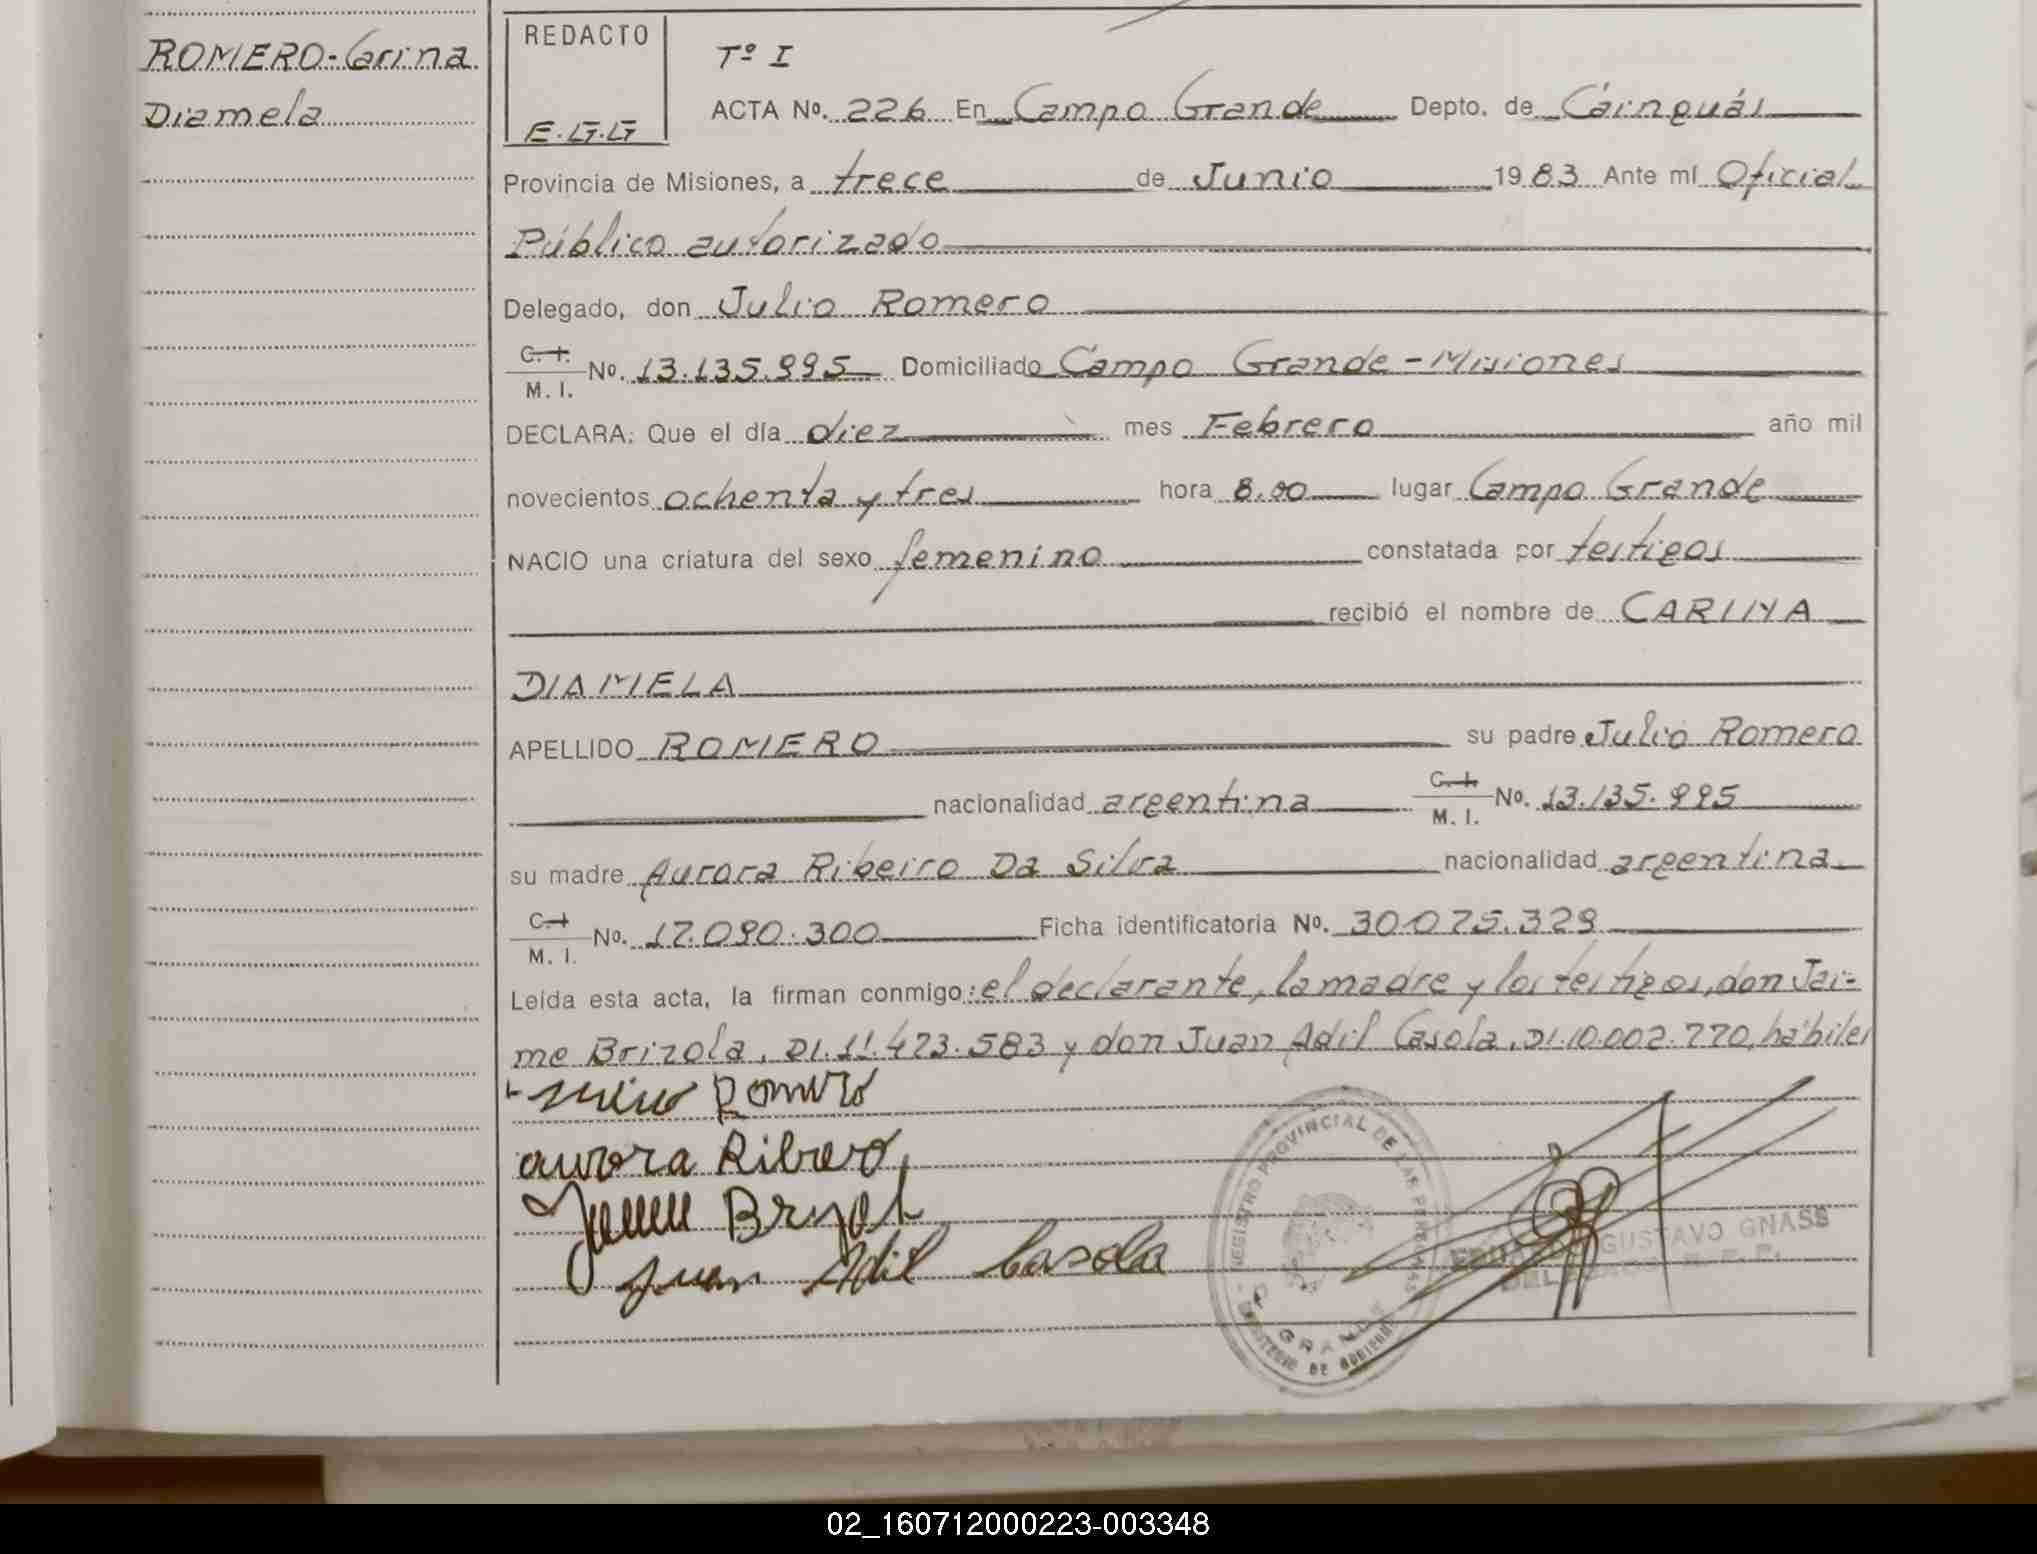 ROMERO-Carina
Diamela
REDACTO
E.G.G
Tº I
ACTA Nº. 226 En Campo Grande Depto. de Cainguás
Provincia de Misiones, a trece de Junio 1983 Ante mí Oficial
Público autorizado
Delegado, don Julio Romero
C. I.
M. I.
Nº. 13.135.995 Domiciliado Campo Grande - Misiones
DECLARA: Que el día diez mes Febrero año mil
novecientos ochenta y tres hora 8.00 lugar Campo Grande
NACIO una criatura del sexo femenino constatada por testigos
recibió el nombre de CARINA
DIAMELA
APELLIDO ROMERO su padre Julio Romero
nacionalidad argentina C. I. M. I. Nº. 13.135.995
su madre Aurora Ribeiro Da Silva nacionalidad argentina
C. I
M. I.
Nº. 17.090.300 Ficha identificatoria Nº. 30.075.329
Leída esta acta, la firman conmigo: el declarante, la madre y los testigos, don Jai-
me Brizola, DI. 11.473.583 y don Juan Adil Casola, DI. 10.002.770, hábiles
Romero
aurora Ribero
Juan Adil Casola
REGISTRO PROVINCIAL DE LAS PERSONAS
GRANDE
MINISTERIO DE GOBIERNO
EDUARDO GUSTAVO GNASS
02_160712000223-003348